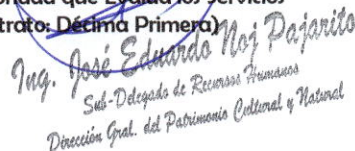 que Evalúa los Servicios
trato: Décima Primera)
Ing. José Eduardo Noj Pajarito
Sub-Delegado de Recursos Humanos
Dirección Gral. del Patrimonio Cultural y Natural